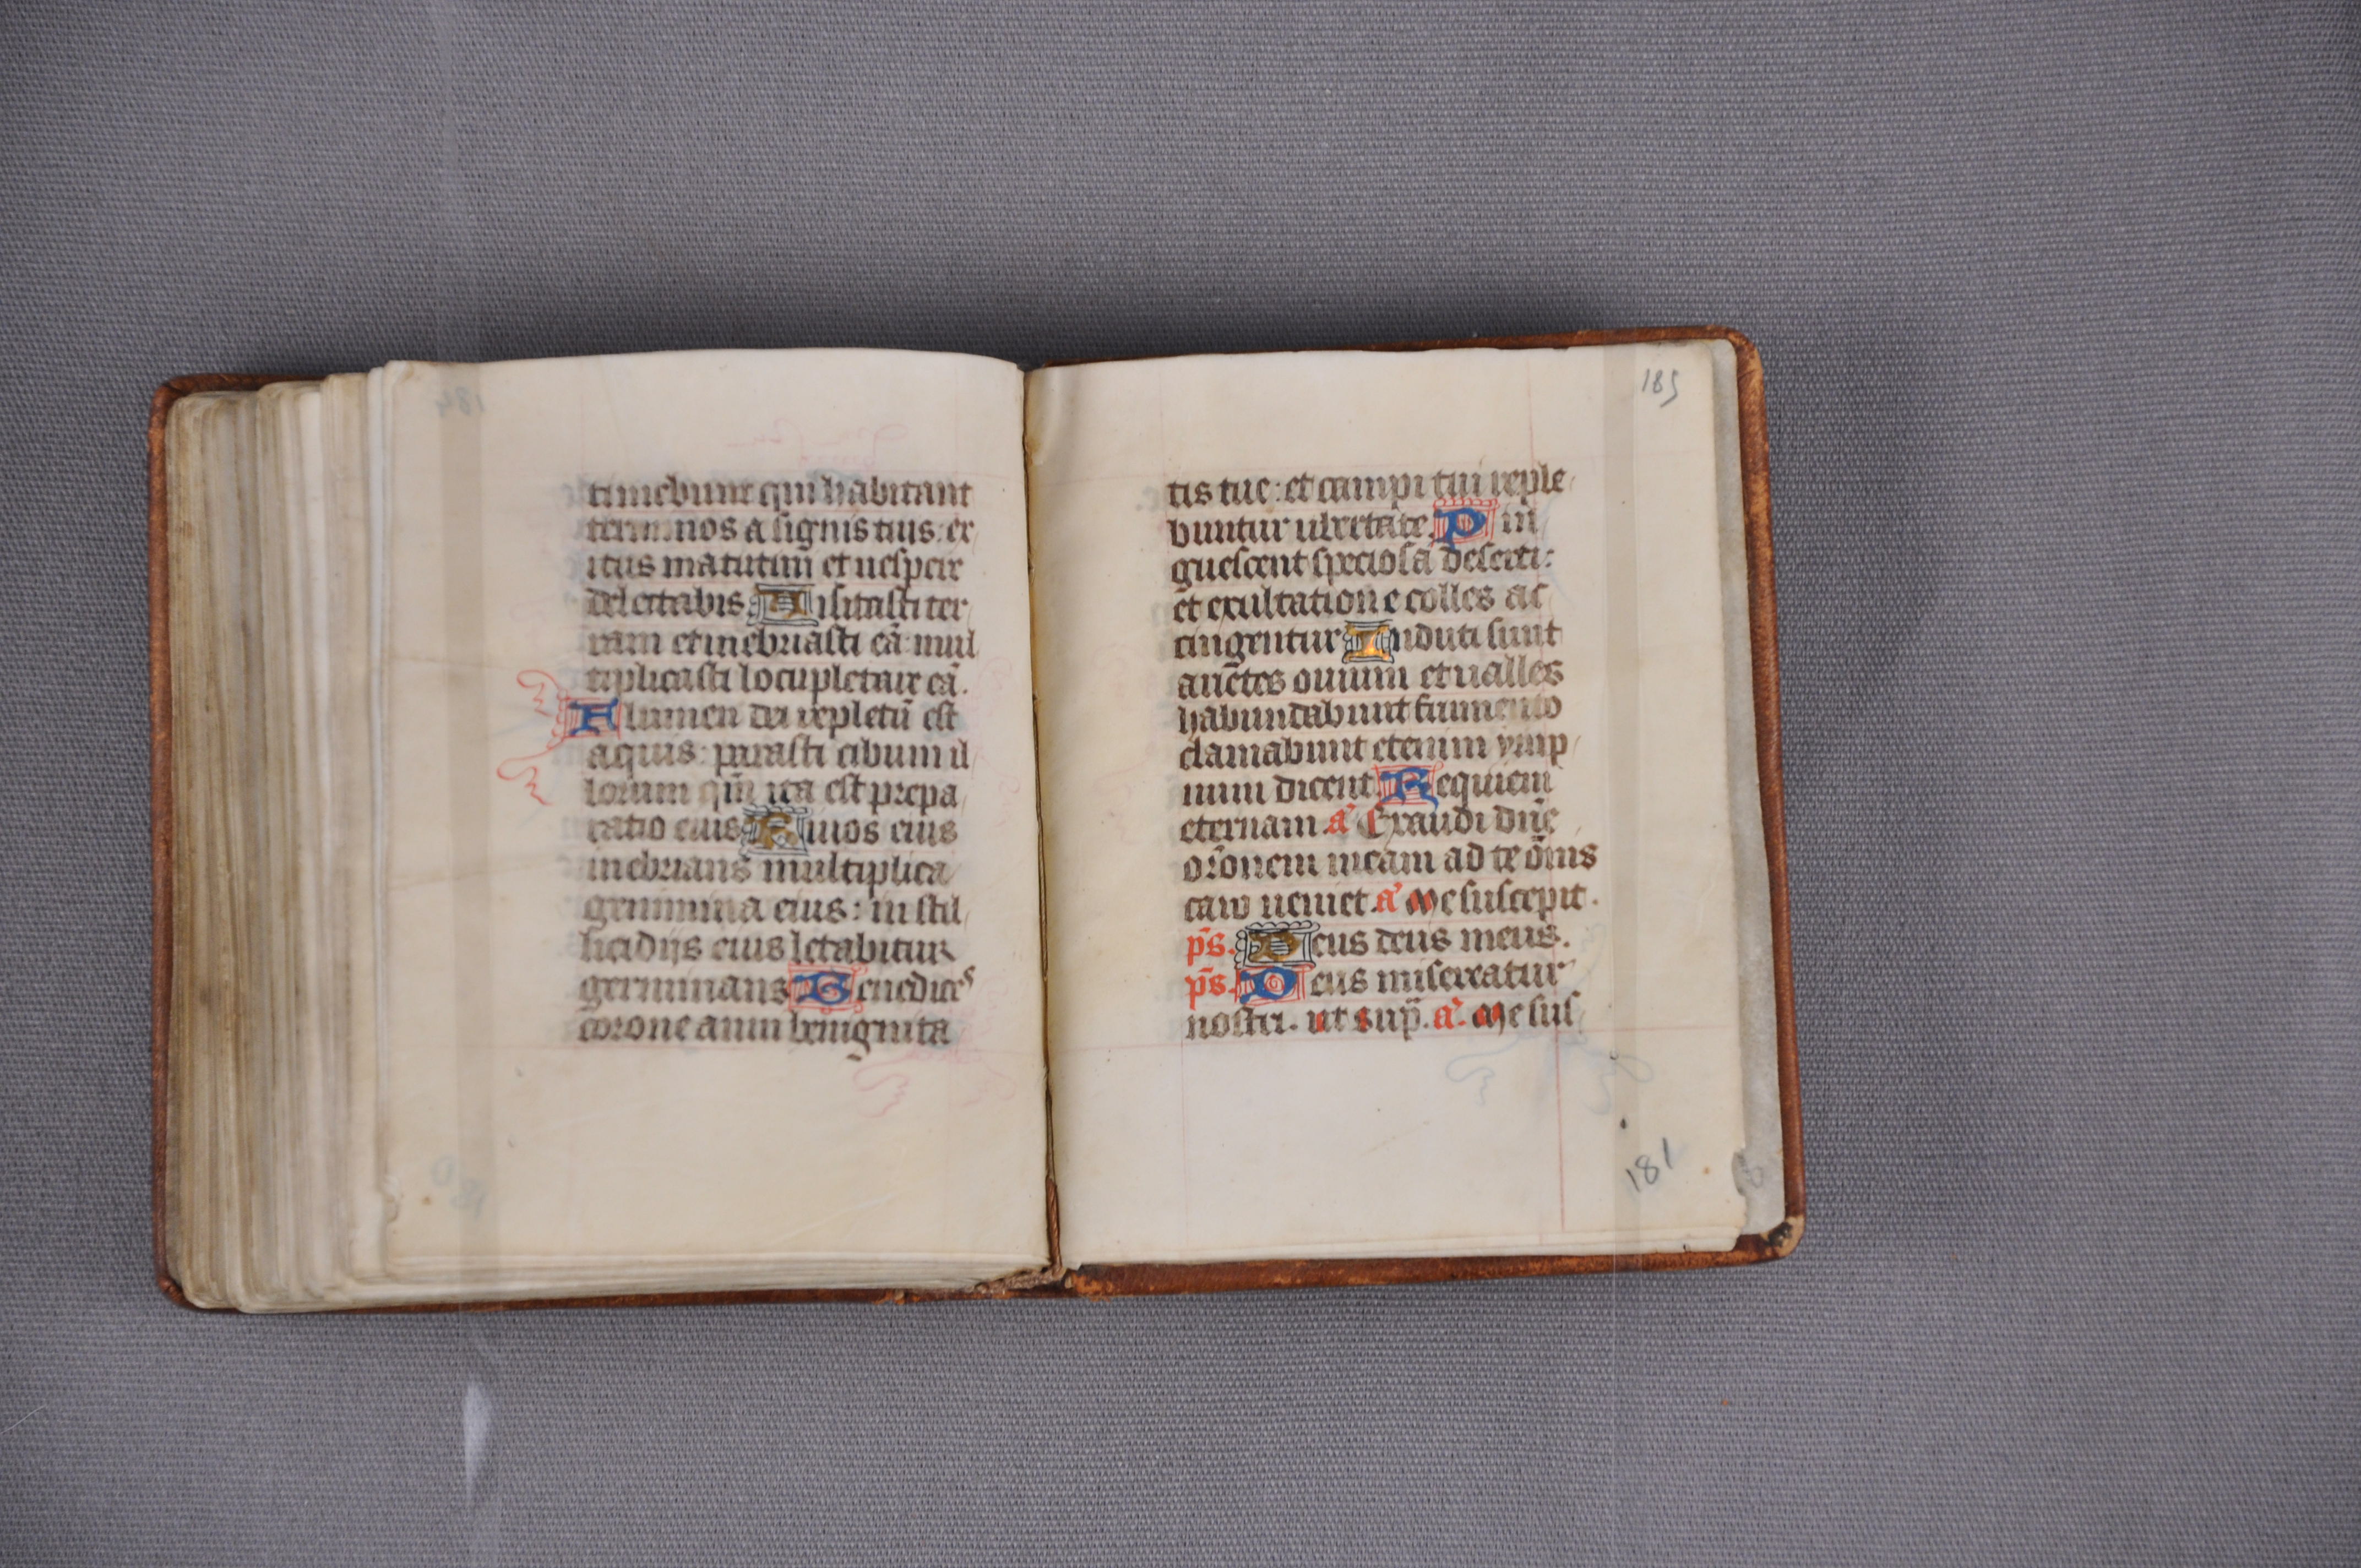 timebunt qui habitant
terminos a signis tuis: ex
itus matutini et uesper
delectabis. Uisitasti ter
ram et inebriasti eā: mul
tiplicasti locupletare eā.
Flumen dei repletū est
aquis: parasti cibum il
lorum qm̄ ita est prepa
ratio eius Riuos eius
inebrians multiplica
genimina eius: in stil
licidijs eius letabitur
germinans Benedices
corone anni benignita
185
tis tue: et campi tui reple
buntur ubertate. Pin
guescent speciosa deserti:
et exultatione colles ac
cingentur Induti sunt
aricētes ouium et ualles
habundabunt frumento
clamabunt etenim ymp
num dicent Requiem
eternam. a' Exaudi dn̄e
or̄onem meam ad te ōmis
caro ueniet. a' Me suscepit.
ps̄. Deus deus meus.
ps̄. Deus misereatur
nostri. ut sup̄. a'. Me sus
181